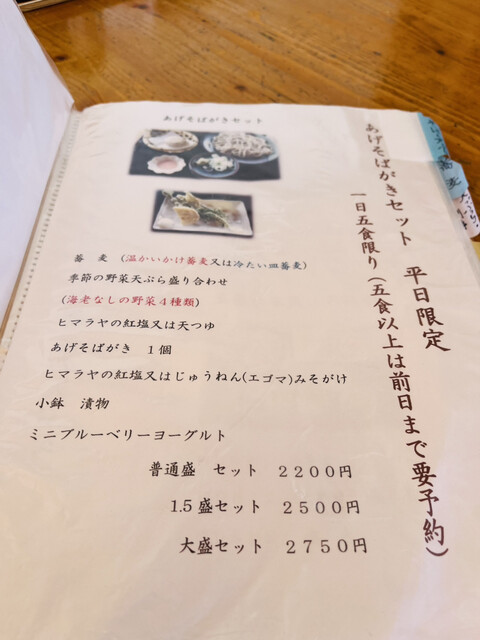 あげそばがきセット　平日限定
一日五食限り（五食以上は前日まで要予約）
あげそばがきセット
蕎　麦　（温かいかけ蕎麦又は冷たい皿蕎麦）
季節の野菜天ぷら盛り合わせ
（海老なしの野菜４種類）
ヒマラヤの紅塩又は天つゆ
あげそばがき　１個
ヒマラヤの紅塩又はじゅうねん(エゴマ)みそがけ
小鉢　漬物
ミニブルーベリーヨーグルト
普通盛　セット　２２００円
1.5 盛セット　２５００円
大盛セット　２７５０円